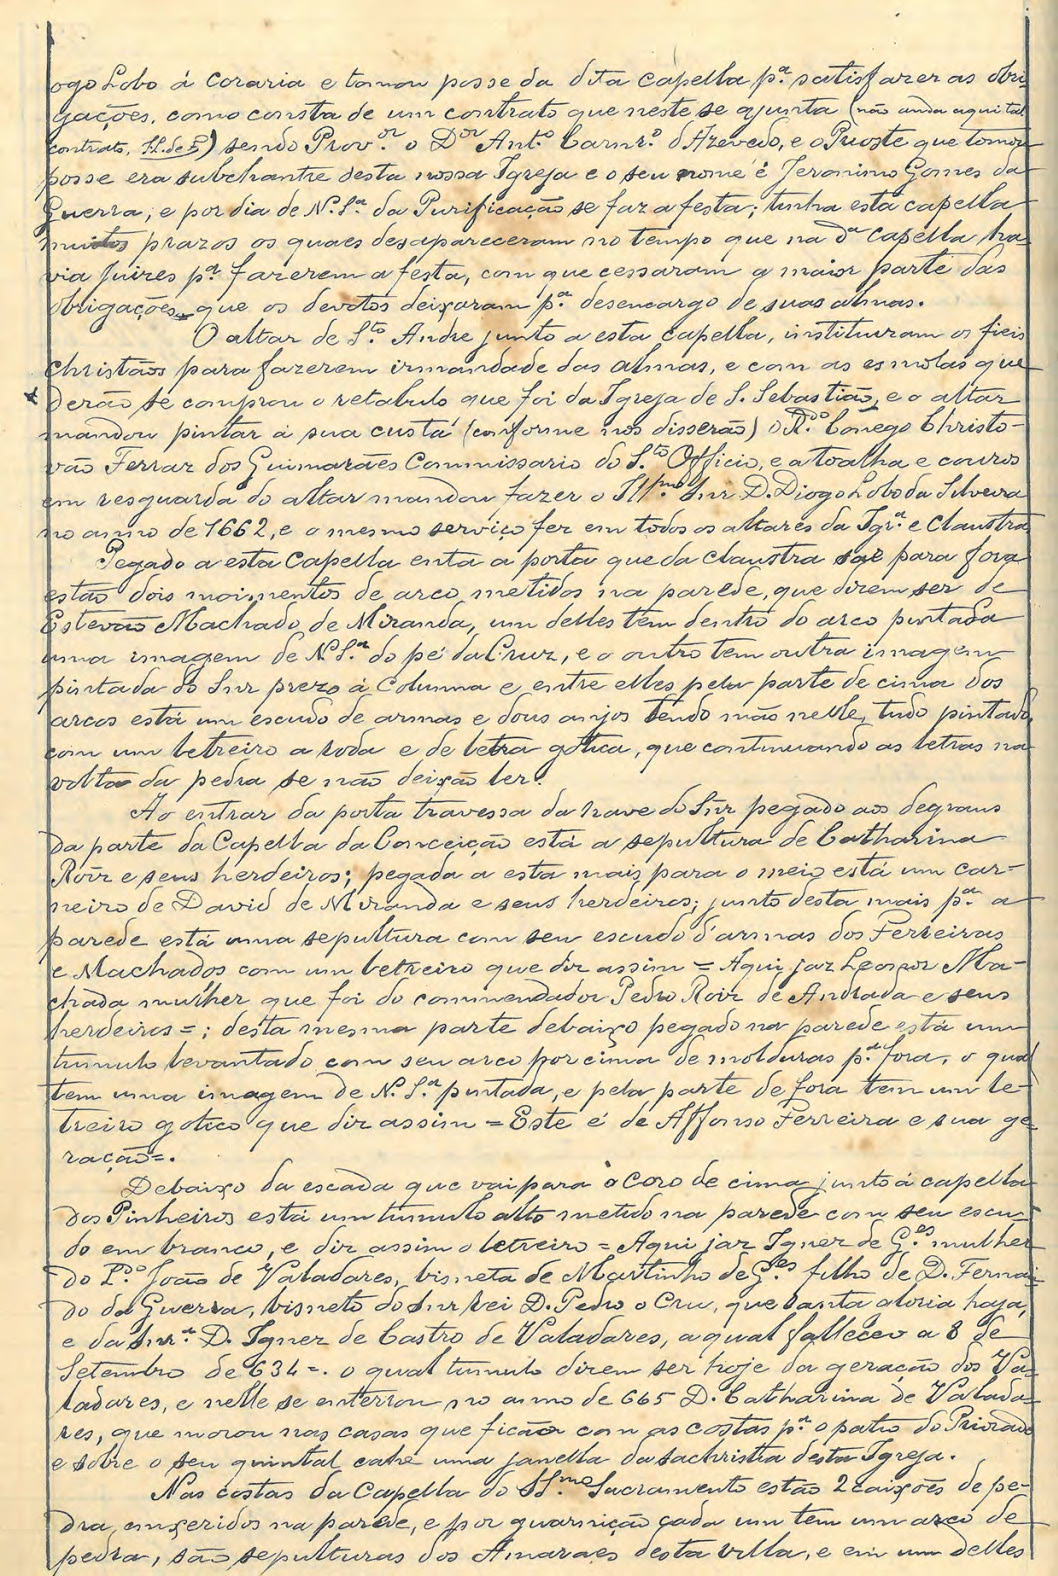 ogo Lobo á coraria e tomou posse da dita capella p.ª satisfazer as obri-
gações, como consta de um contrato que neste se ajunta (não anda aqui tal
contrato, ) sendo Prov.or o D.or Ant.º Carnr.º d'Azevedo, e o Prioste que tomou
posse era subchantre desta nossa Igreja e o seu nome é Jeronimo Gomes da
Guerra; e por dia de N. S.ª da Purificação se faz a festa; tinha esta capella
muitos prazos os quaes desapareceram no tempo que na d.ª capella ha-
via Juizes p.ª fazerem a festa, com que cessaram a maior parte das
obrigações que os devotos deixaram p.ª desencargo de suas almas.
O altar de S.to André junto a esta capella, instituiram os fieis
christãos para fazerem irmandade das almas, e com as esmolas que
derão se comprou o retabulo que foi da Igreja de S. Sebastião, e o altar
mandou pintar á sua custa (conforme nos disserão) o R.do Conego Christo-
vão Ferraz dos Guimarães Commissario do S.to Officio, e a toalha e couros
em resguarda do altar mandou fazer o Ill.mo Snr D. Diogo Lobo da Silveira
no anno de 1662, e o mesmo serviço fez em todos os altares da Igr.ª e Claustra
Pegado a esta Capella entra a porta que da claustra sae para fora
estão dois moimentos de arco metidos na parede, que dizem ser de
Estevão Machado de Miranda, um delles tem dentro do arco pintada
uma imagem de N. S.ª do pé da Cruz, e o outro tem outra imagem
pintada do Snr prezo á Columna e entre elles pela parte de cima dos
arcos está um escudo de armas e dous anjos tendo mão nelle, tudo pintado
com um letreiro a roda e de letra gotica, que continuando as letras na
volta da pedra se não deixão ler.
Ao entrar da porta travessa da nave do Snr pegado aos degraus
da parte da Capella da Conceição está a sepultura de Catharina
Roiz e seus herdeiros; pegada a esta mais para o meio está um car-
neiro de David de Miranda e seus herdeiros; junto desta mais p.ª a
parede está uma sepultura com seu escudo d'armas dos Ferreiras
e Machados com um letreiro que diz assim = Aqui jaz Leonor Ma-
chada mulher que foi do commendador Pedro Roiz de Andrada e seus
herdeiros = ; desta mesma parte debaixo pegado na parede está um
tumulo levantado com seu arco por cima de molduras p.ª fora, o qual
tem uma imagem de N. S.ª pintada, e pela parte de fora tem um le-
treiro gotico que diz assim = Este é de Affonso Ferreira e sua ge
ração =.
Debaixo da escada que vai para o Coro de cima junto á capella
dos Pinheiros está um tumulo alto metido na parede com seu escu-
do em branco, e diz assim o letreiro = Aqui jaz Ignez de G.es mulher
do L.do João de Valadares, bisneta de Martinho de G.es filho de D. Fernan-
do da Guerra, bisneto do Snr Rei D. Pedro o Cru, que santa gloria haja,
e da Snr.ª D. Ignez de Castro de Valadares, a qual falleceo a 8 de
Setembro de 634 =. o qual tumulo dizem ser hoje da geração dos Va-
ladares, e nelle se enterrou no anno de 665 D. Catharina de Valada-
res, que morou nas casas que ficão com as costas p.ª o patio do Priorado
e sobre o seu quintal cahe uma janella da sachristia desta Igreja.
Nas costas da Capella do SS.mo Sacramento estão 2 caixões de pe-
dra, enxeridos na parede, e por guarnição cada um tem um arco de
pedra, são sepulturas dos Amaraes desta villa, e em um delles